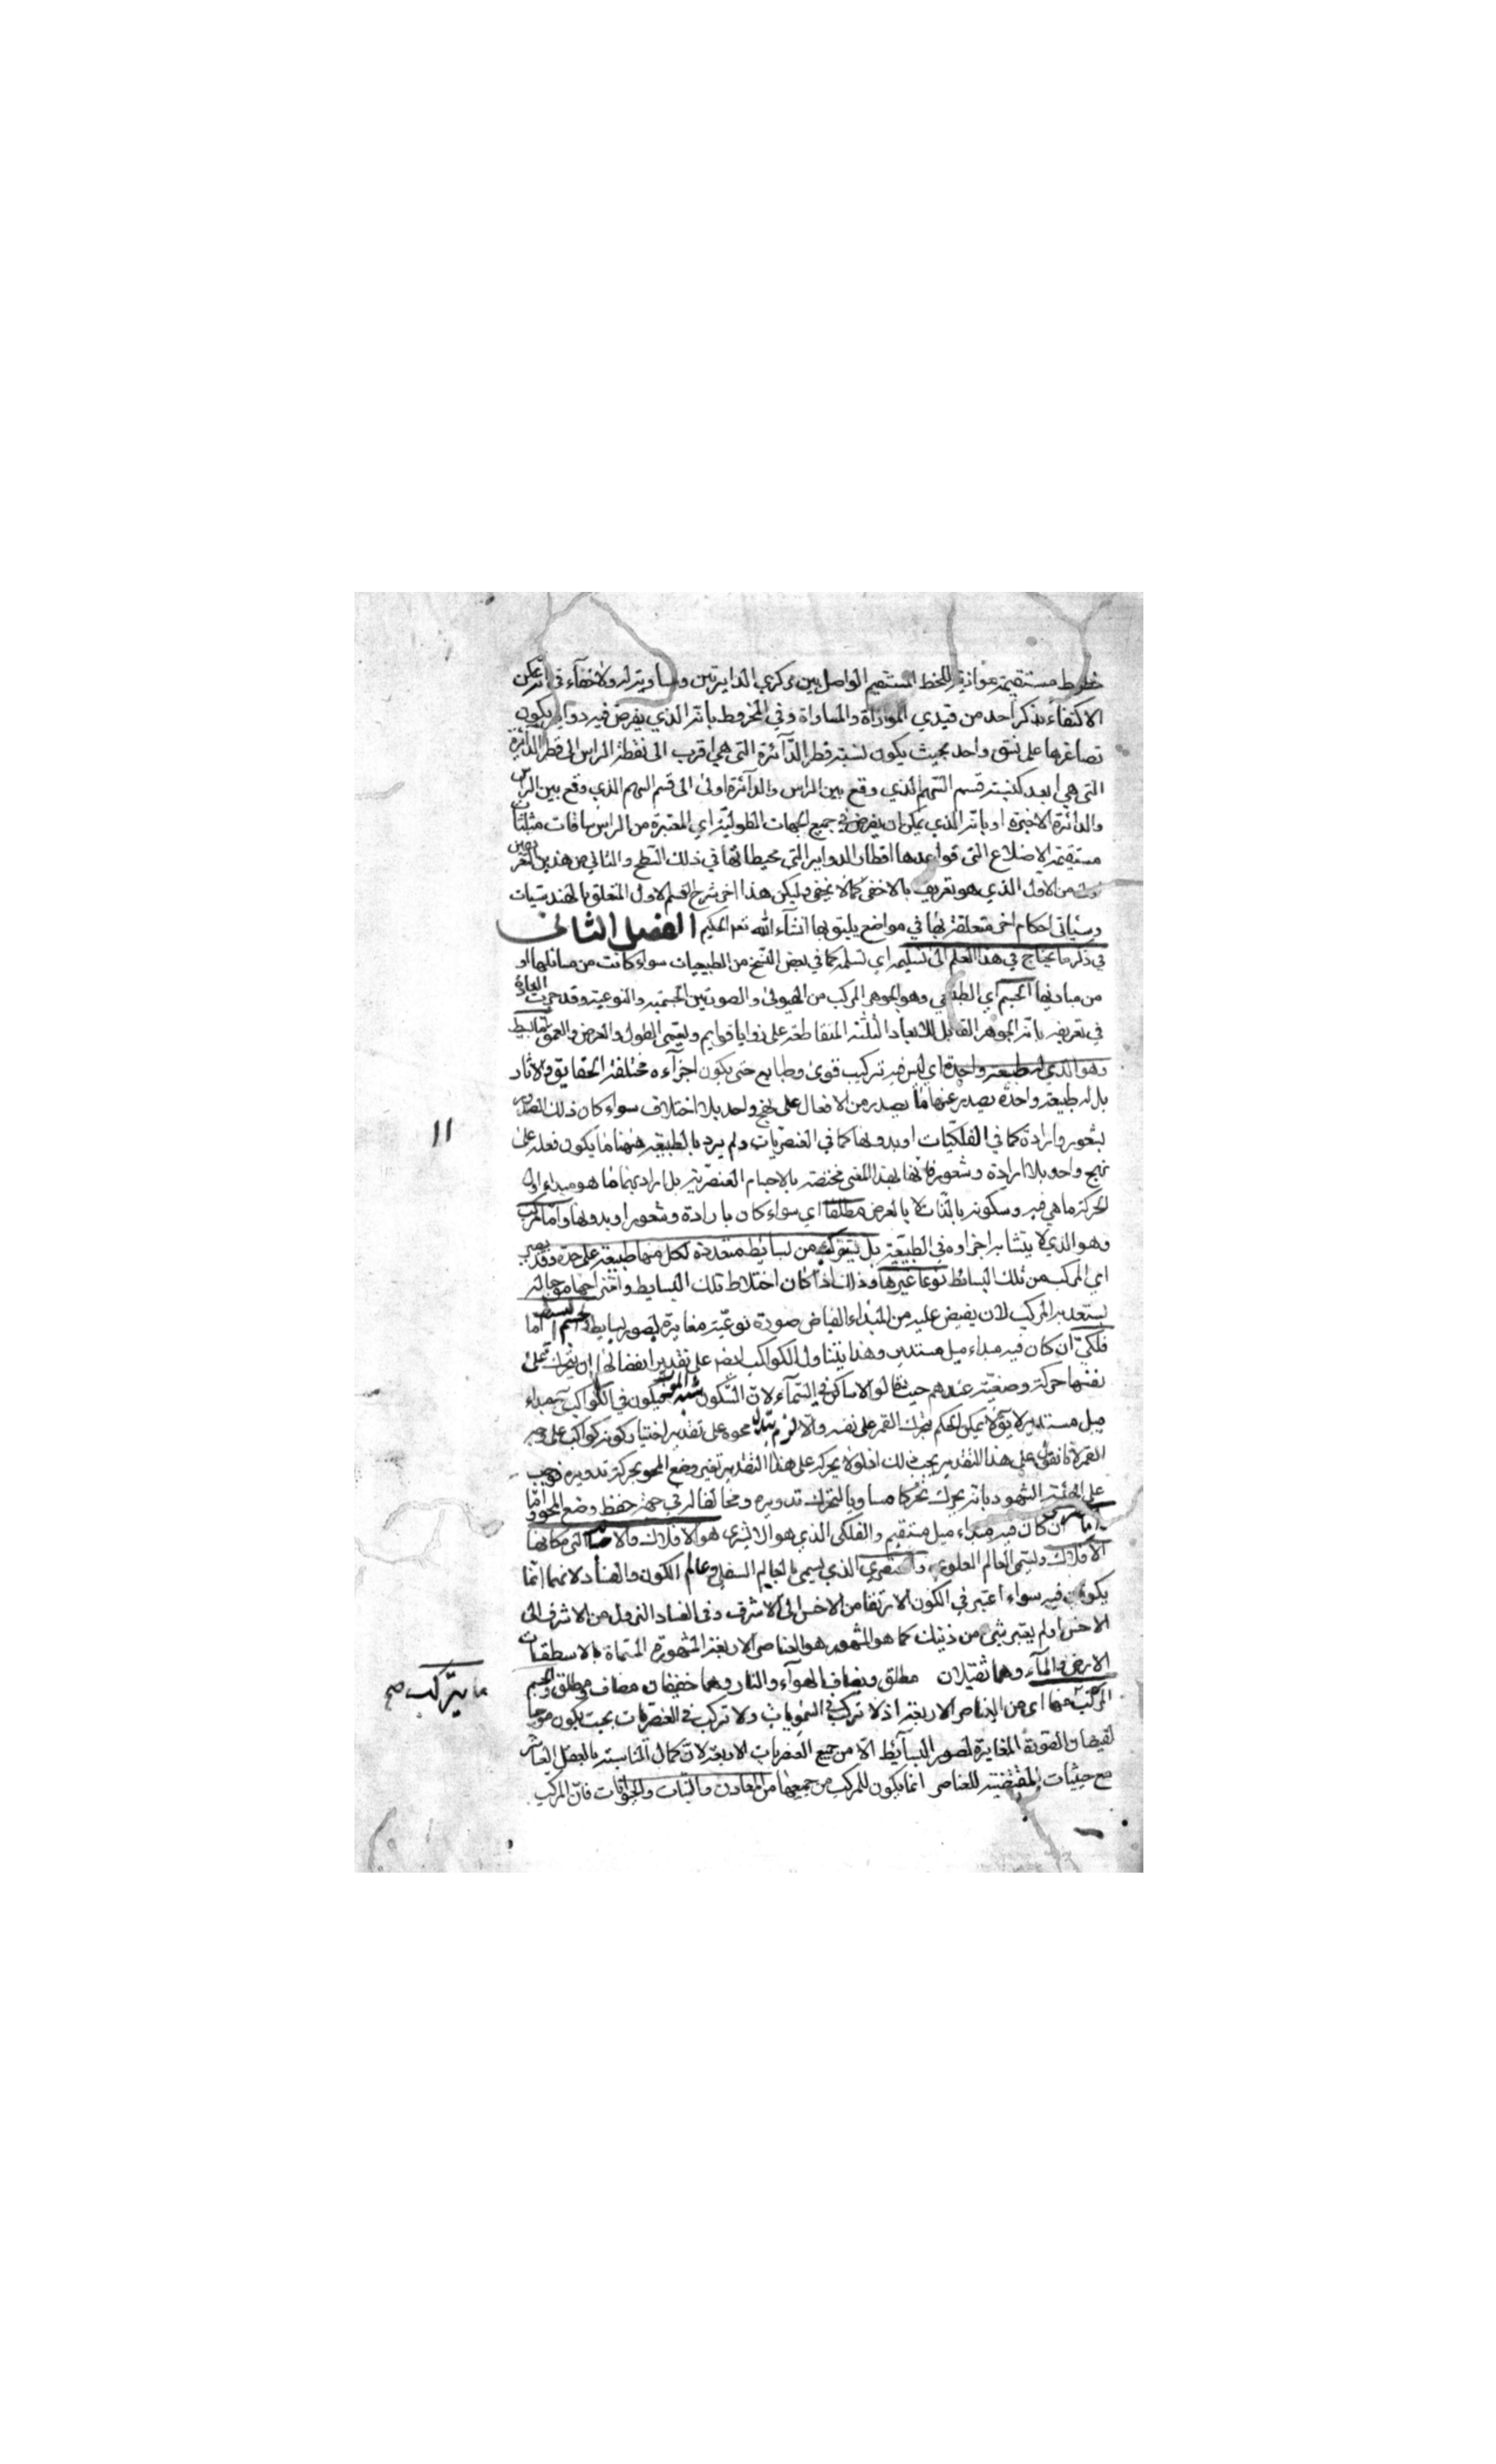 خطوط مستقيمة موازية للخط المستقيم الواصل بين مركزي الدايرتين ومساوية له ولا خفآء في انه يمكن
الاكتفاء بذكر احد من قيدي الموازاة والمساواة وفي المخروط بانه الذي يفرض فيه دواير يكون
تصاغرها على نسق واحد بحيث يكون نسبة قطر الدآئرة التي هي اقرب الى نقطة الراس الى قطر الدائرة
التي هي ابعد كنسبة قسم السهم الذي وقع بين الراس والدآئرة اولى الى قسم السهم الذي وقع بين الراس
والدائرة الاخيرة او بانه الذي يمكن ان يفرض في جميع الجهات الطولية اي المعتبرة من الراس ساقات مثلثات
مستقيمة الاضلاع التي قواعدها اقطار الدواير التي محيطاتها في ذلك السطح والثاني من هذين التعريفين
من الاول الذي هو تعريف بالاخفى كما لا يخفى وليكن هذا اخر شرح القسم الاول المتعلق بالهندسيات
وسياتي احكام اخر متعلقة بها في مواضع يليق بها انشآء الله الحكيم الفصل الثاني
في ذكر ما يحتاج في هذا العلم الى تسليمه اي تسلمه كما في بعض النسخ من الطبيعيات سواء كانت من مسائلها او
من مباديها الجسم اي الطبيعي وهو الجوهر المركب من الهيولى والصورتين الجسمية والنوعية وقد جرت العادة
في تعريفه بانه الجوهر القابل للابعاد الثلثة المتقاطعة على زوايا قوايم ويسمى الطول والعرض والعمق اما بسيط
وهو الذي له طبيعة واحدة اي ليس فيه تركيب قوى وطبايع حتى يكون اجزآءه مختلفة الحقايق والاثار
بل له طبيعة واحدة يصدر عنها ما يصدر من الافعال على نهج واحد بلا اختلاف سواء كان ذلك الصدور
بشعور وارادة كما في الفلكيات او بدونها كما في العنصريات ولم يرد بالطبيعة ههنا ما يكون فعله على
نهج واحد بلا ارادة وشعور فانها بهذا المعنى مختصة بالاجسام العنصرية بل اراد بها ما هو مبداء اول
لحركة ما هي فيه وسكونه بالذات لا بالعرض مطلقا اي سواء كان بارادة وشعور او بدونها واما مركب
وهو الذي لا يتشابه اجزاوه في الطبيعة بل يتركب من بسايط متعددة لكل منها طبيعة على حدة وقد يصير
اي المركب من تلك البسائط نوعا غيرها وذلك اذا كان اختلاط تلك البسايط وامتزاجها موجبا له
يستعد به المركب لان يفيض عليه من المبداء الفياض صورة نوعية مغايرة لصور بسايطه والجسم البسيط اما
فلكي ان كان فيه مبداء ميل مستدير وهذا يتناول الكواكب ايضا على تقدير انفصالها ان يتحرك على
نفسها حركة وضعية عندهم حيث قالوا لا ساكن في السمآء لان السكون شبه الموت فيكون في الكواكب مبداء
ميل مستدير لا يمكن الحكم بتحرك القمر على نفسه والا لزم تبدل محوه على تقدير اختيار كونه كواكب على وجه
القمر لانا نقول على هذا التقدير يجب ذلك اذ لولا تحركه على هذا التقدير تغير وضع المحو بحركة تدويره فوجب
على الهيئة الشهود بانه يحرك تحركا مساويا لتحرك تدويره ومخالفا له في جهة حفظ وضع المحو واما
ان كان فيه مبداء ميل مستقيم والفلكي الذي هو الاثيري هو الافلاك والا التي مكانها
الافلاك ويسمى العالم العلوي والعنصري الذي يسمى بالعالم السفلي وعالم الكون والفساد لانهما انما
يكونان فيه سواء اعتبر في الكون الارتقا من الاخس الى الاشرف وفي الفساد النزول من الاشرف الى
الاخس او لم يعتبر شيء من ذينك كما هو المشهور هو العناصر الاربعة المشهورة المسماة بالاسطقسات
الارض والمآء وهما ثقيلان مطلق ومضاف الهوآء والنار وهما خفيفان مضاف ومطلق والجسم
المركب منها اي من العناصر الاربعة اذ لا تركب في السمويات ولا تركب في العنصريات بحيث يكون موجبا
لفيضان الصورة المغايرة لصور البسآئط الا من جميع العنصريات الاربعة لان كمال المناسبة بالعقل العاشر
مع حيثيات المقتضية للعناصر انما يكون للمركب من جميعها من المعادن والنبات والحيوانات فان المركب
١١
ما يتركب صح